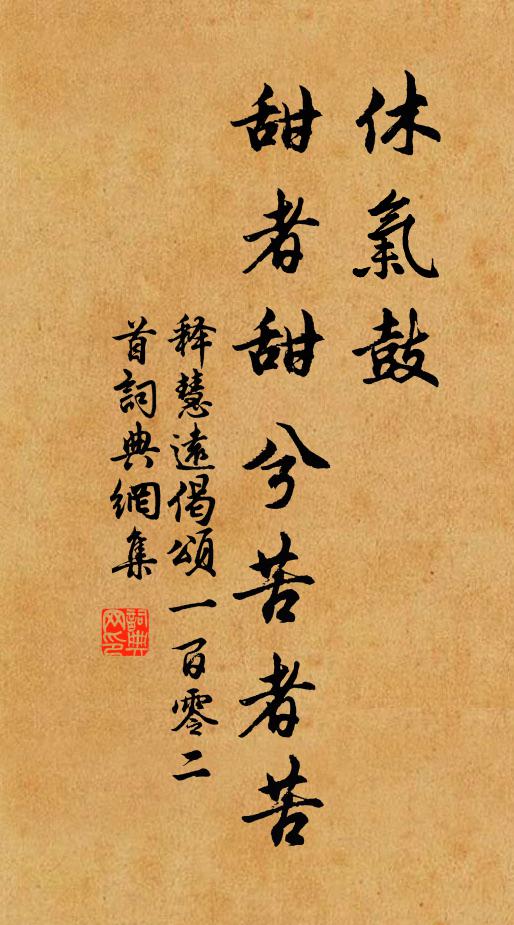 休氣鼓
甜者甜兮苦者苦
释慧遠偈頌一百零二
首詞典網集
詞典网印